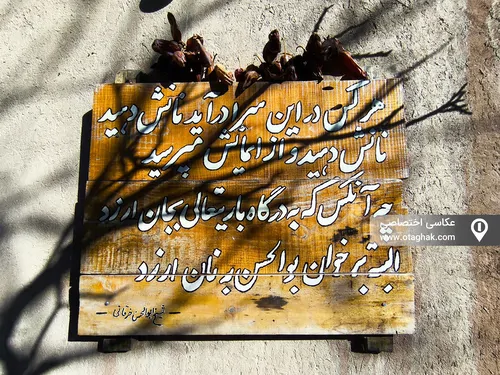 هر کس در این سرا درآید نانش دهید
نانش دهید و از ایمانش مپرسید
چه آنکس که به درگاه باریتعالی بجان ارزد
البته بر خوان بوالحسن به نان ارزد
شیخ ابوالحسن خرقانی
عکاسی اختصاصی
www.otaghak.com